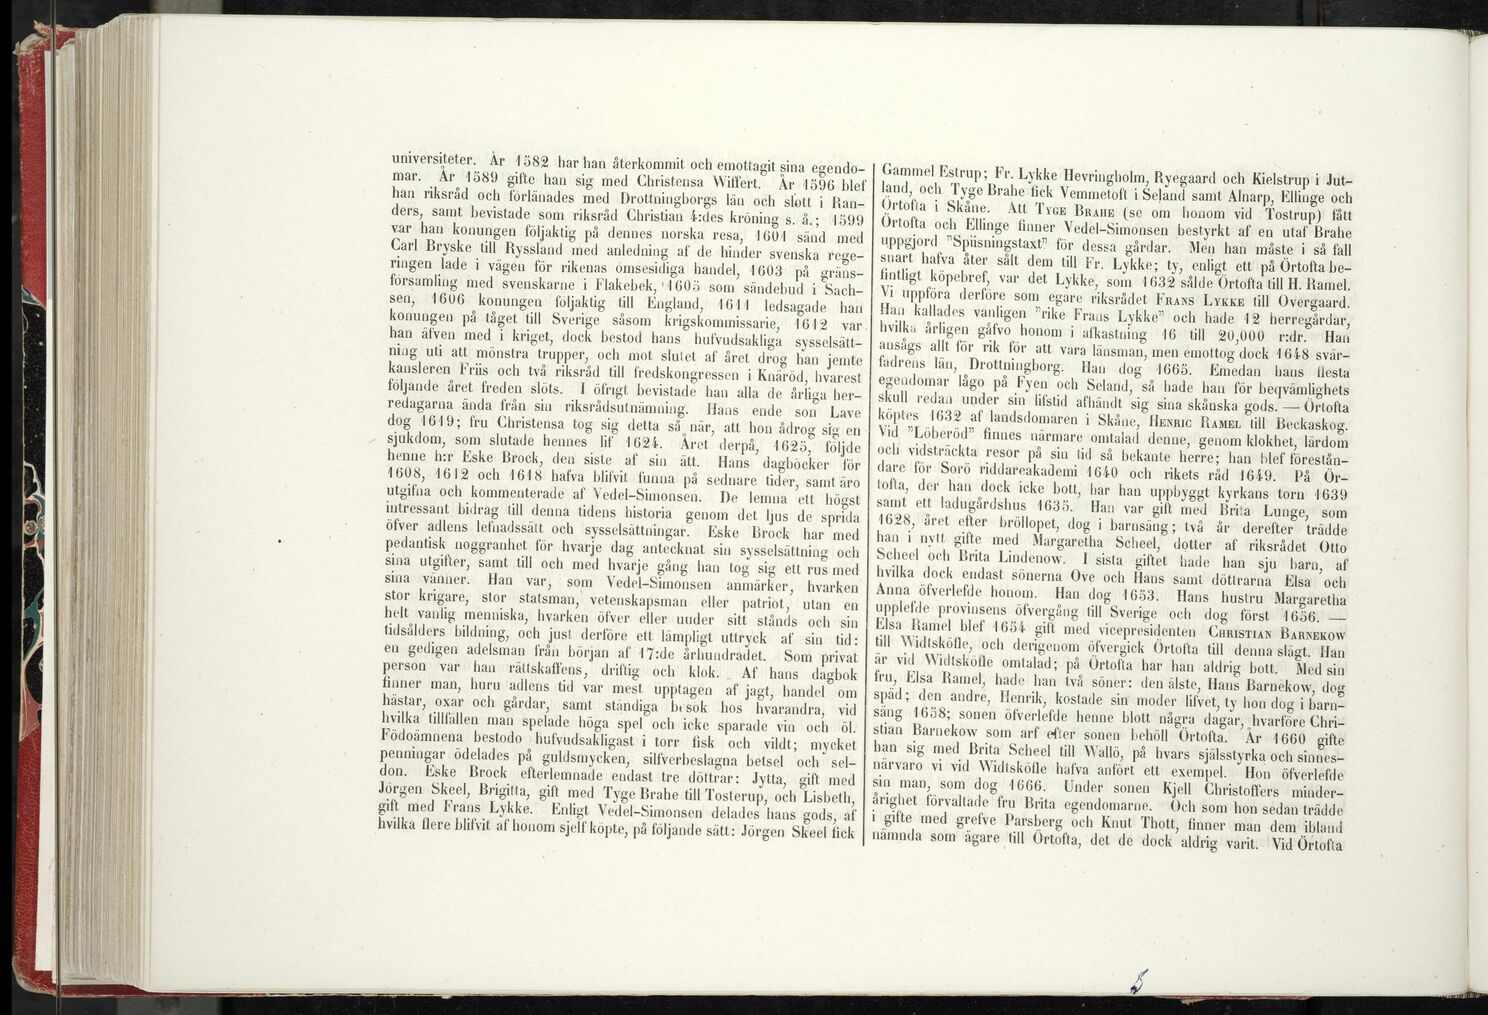 universiteter. År 1582 har han återkommit och emottagit sina egendo-
mar. År 1589 gifte han sig med Christensa Wiffert. År 1596 blef
han riksråd och förlänades med Drottningborgs län och slott i Ran-
ders, samt bevistade som riksråd Christian 4:des kröning s. å.; 1599
var han konungen följaktig på dennes norska resa, 1601 sänd med
Carl Bryske till Ryssland med anledning af de hinder svenska rege-
ringen lade i vägen för rikenas ömsesidiga handel, 1603 på gräns-
församling med svenskarne i Flakebek, 1605 som sändebud i Sach-
sen, 1606 konungen följaktig till England, 1611 ledsagade han
konungen på tåget till Sverige såsom krigskommissarie, 1612 var
han äfven med i kriget, dock bestod hans hufvudsakliga sysselsätt-
ning uti att mönstra trupper, och mot slutet af året drog han jemte
kansleren Friis och två riksråd till fredskongressen i Knäröd, hvarest
följande året freden slöts. I öfrigt bevistade han alla de årliga her-
redagarna ända från sin riksrådsutnämning. Hans ende son Lave
dog 1619; fru Christensa tog sig detta så när, att hon ådrog sig en
sjukdom, som slutade hennes lif 1624. Året derpå, 1625, följde
henne h:r Eske Brock, den siste af sin ätt. Hans dagböcker för
1608, 1612 och 1618 hafva blifvit funna på sednare tider, samt äro
utgifna och kommenterade af Vedel-Simonsen. De lemna ett högst
intressant bidrag till denna tidens historia genom det ljus de sprida
öfver adlens lefnadssätt och sysselsättningar. Eske Brock har med
pedantisk noggranhet för hvarje dag antecknat sin sysselsättning och
sina utgifter, samt till och med hvarje gång han tog sig ett rus med
sina vänner. Han var, som Vedel-Simonsen anmärker, hvarken
stor krigare, stor statsman, vetenskapsman eller patriot, utan en
helt vanlig menniska, hvarken öfver eller under sitt stånds och sin
tidsålders bildning, och just derföre ett lämpligt uttryck af sin tid:
en gedigen adelsman från början af 17:de århundradet. Som privat
person var han rättskaffens, driftig och klok. Af hans dagbok
finner man, huru adlens tid var mest upptagen af jagt, handel om
hästar, oxar och gårdar, samt ständiga besök hos hvarandra, vid
hvilka tillfällen man spelade höga spel och icke sparade vin och öl.
Födoämnena bestodo hufvudsakligast i torr fisk och vildt; mycket
penningar ödelades på guldsmycken, silfverbeslagna betsel och sel-
don. Eske Brock efterlemnade endast tre döttrar: Jytta, gift med
Jörgen Skeel, Brigitta, gift med Tyge Brahe till Tosterup, och Lisbeth,
gift med Frans Lykke. Enligt Vedel-Simonsen delades hans gods, af
hvilka flere blifvit af honom sjelf köpte, på följande sätt: Jörgen Skeel fick
Gammel Estrup; Fr. Lykke Hevringholm, Ryegaard och Kielstrup i Jut-
land, och Tyge Brahe fick Vemmetoft i Seland samt Alnarp, Ellinge och
Örtofta i Skåne. Att Tyge Brahe (se om honom vid Tostrup) fått
Örtofta och Ellinge finner Vedel-Simonsen bestyrkt af en utaf Brahe
uppgjord "Spiisningstaxt" för dessa gårdar. Men han måste i så fall
snart hafva åter sålt dem till Fr. Lykke; ty, enligt ett på Örtofta be-
fintligt köpebref, var det Lykke, som 1632 sålde Örtofta till H. Ramel.
Vi uppföra derföre som egare riksrådet Frans Lykke till Overgaard.
Han kallades vanligen "rike Frans Lykke" och hade 12 herregårdar,
hvilka årligen gåfvo honom i afkastning 16 till 20,000 r:dr. Han
ansågs allt för rik för att vara länsman, men emottog dock 1648 svär-
fadrens län, Drottningborg. Han dog 1665. Emedan hans flesta
egendomar lågo på Fyen och Seland, så hade han för beqvämlighets
skull redan under sin lifstid afhändt sig sina skånska gods. — Örtofta
köptes 1632 af landsdomaren i Skåne, Henric Ramel till Beckaskog.
Vid "Löberöd" finnes närmare omtalad denne, genom klokhet, lärdom
och vidsträckta resor på sin tid så bekante herre; han blef förestån-
dare för Sorö riddareakademi 1640 och rikets råd 1649. På Ör-
tofta, der han dock icke bott, har han uppbyggt kyrkans torn 1639
samt ett ladugårdshus 1635. Han var gift med Brita Lunge, som
1628, året efter bröllopet, dog i barnsäng; två år derefter trädde
han i nytt gifte med Margaretha Scheel, dotter af riksrådet Otto
Scheel och Brita Lindenow. I sista giftet hade han sju barn, af
hvilka dock endast sönerna Ove och Hans samt döttrarna Elsa och
Anna öfverlefde honom. Han dog 1653. Hans hustru Margaretha
upplefde provinsens öfvergång till Sverige och dog först 1656. —
Elsa Ramel blef 1654 gift med vicepresidenten Christian Barnekow
till Widtsköfle, och derigenom öfvergick Örtofta till denna slägt. Han
är vid Widtsköfle omtalad; på Örtofta har han aldrig bott. Med sin
fru, Elsa Ramel, hade han två söner: den älste, Hans Barnekow, dog
späd; den andre, Henrik, kostade sin moder lifvet, ty hon dog i barn-
säng 1658; sonen öfverlefde henne blott några dagar, hvarföre Chri-
stian Barnekow som arf efter sonen behöll Örtofta. År 1660 gifte
han sig med Brita Scheel till Wallö, på hvars själsstyrka och sinnes-
närvaro vi vid Widtsköfle hafva anfört ett exempel. Hon öfverlefde
sin man, som dog 1666. Under sonen Kjell Christoffers minder-
årighet förvaltade fru Brita egendomarne. Och som hon sedan trädde
i gifte med grefve Parsberg och Knut Thott, finner man dem ibland
nämnda som ägare till Örtofta, det de dock aldrig varit. Vid Örtofta